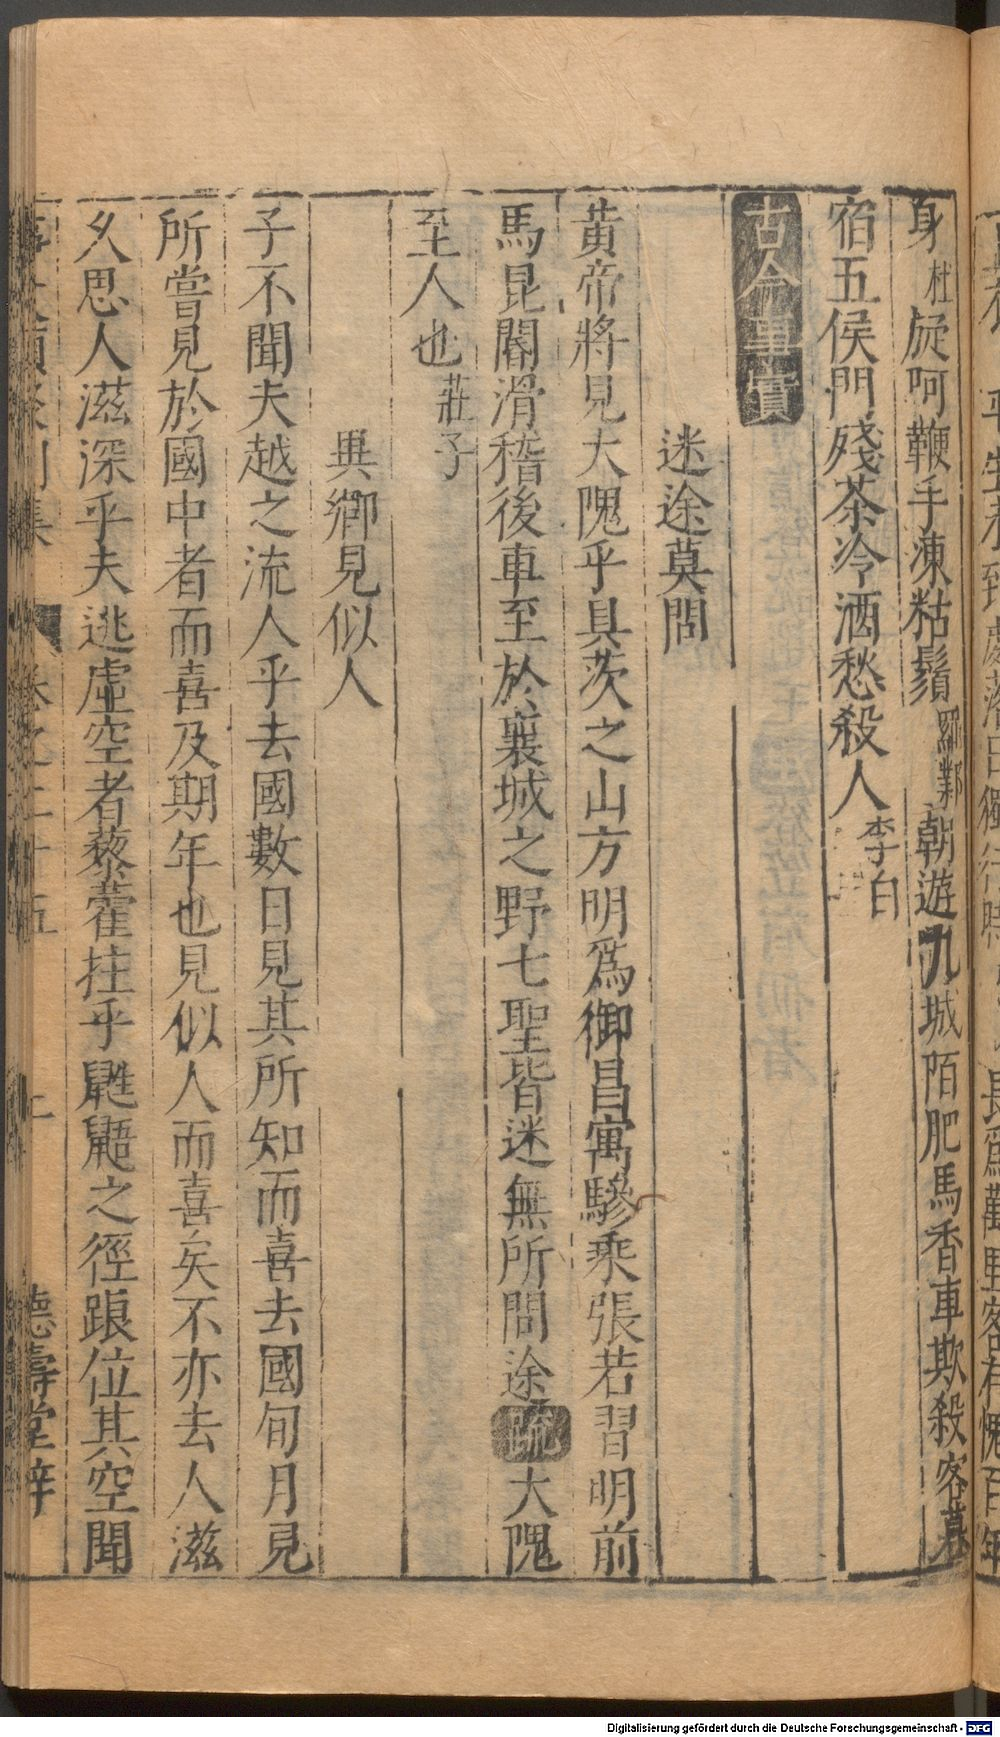 身杜旋呵鞭手凍粘鬚羅鄴朝遊九城陌肥馬香車欺殺客暮
宿五侯門殘茶冷酒愁殺人李白
古今事實
迷途莫問
黃帝將見大隗乎具茨之山方明爲御昌寓驂乘張若習明前
馬昆閽滑稽後車至於襄城之野七聖皆迷無所問途疏大隗
至人也莊子
異鄉見似人
子不聞夫越之流人乎去國數日見其所知而喜去國旬月見
所嘗見於國中者而喜及期年也見似人而喜矣不亦去人滋
久思人滋深乎夫逃虛空者藜藿拄乎鼪鼯之徑踉位其空聞
集 卷之二十五 上 德壽堂梓
Digitalisierung gefördert durch die Deutsche Forschungsgemeinschaft - DFG